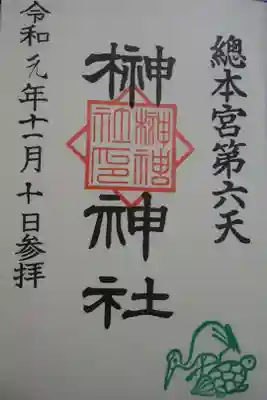 總本宮第六天
榊神社
榊神
社印
令和元年十一月十日参拝